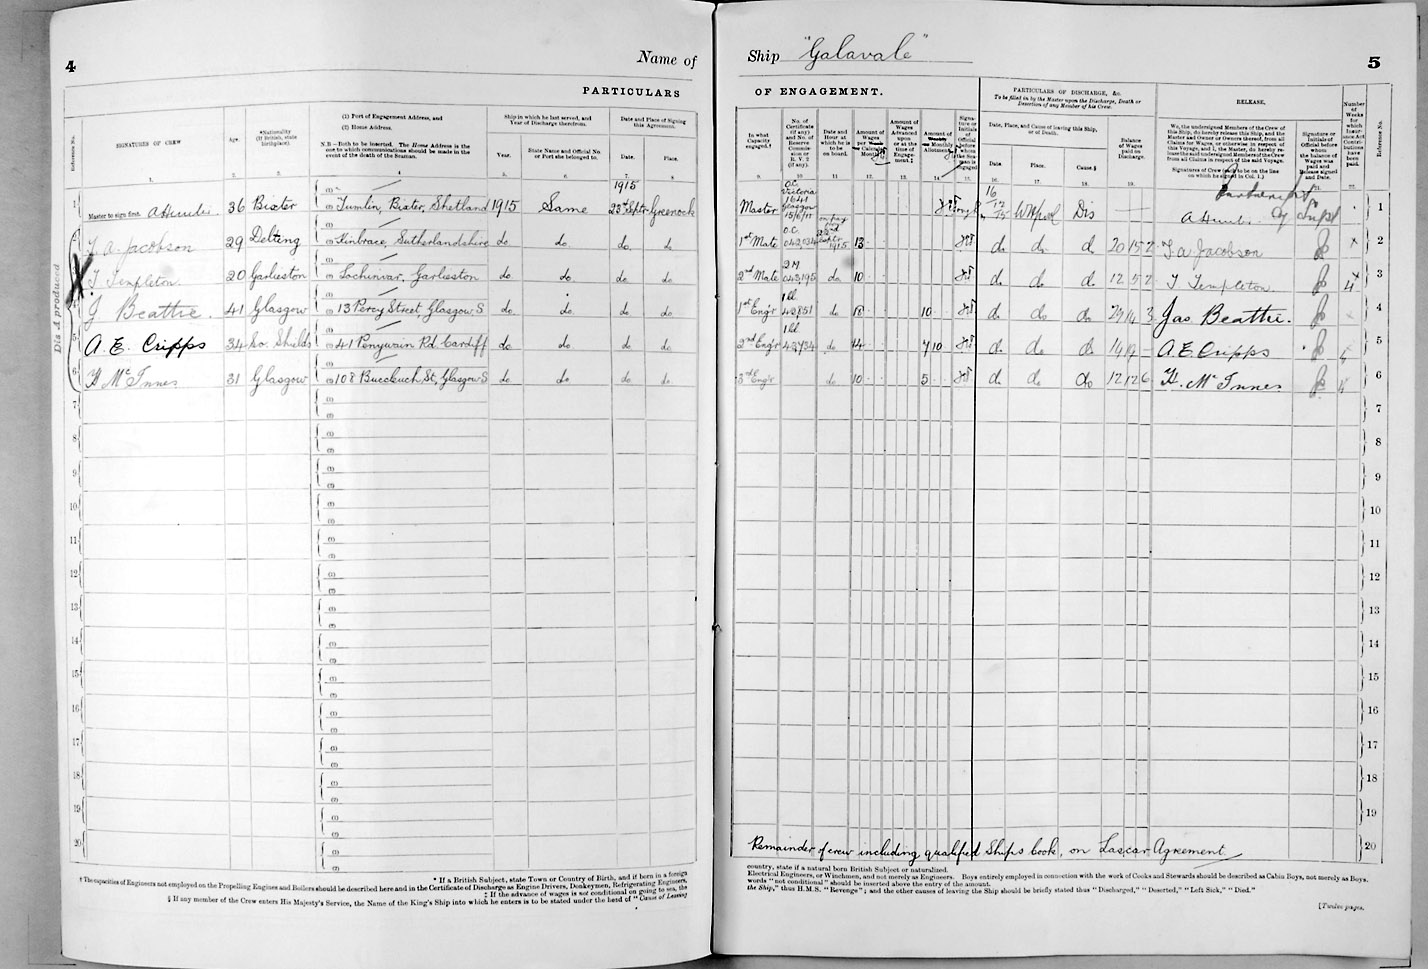 4
Name of
PARTICULARS
Reference No.
SIGNATURES OF CREW
Age.
*Nationality
(If British, state
birthplace).
(1) Port of Engagement Address, and
(2) Home Address.
N.B.—Both to be inserted. The Home Address is the
one to which communications should be made in the
event of the death of the Seaman.
Ship in which he last served, and
Year of Discharge therefrom.
Year.
State Name and Official No.
or Port she belonged to.
Date and Place of Signing
this Agreement.
Date.
Place.
1. 2. 3. 4 5. 6. 7. 8.
1915
1 Master to sign first. 36 Bixter Tumlin, Bixter, Shetland 1915 Same 23rd Septr Greenock
2 T. A. Jacobson 29 Delting Kinbrace, Sutherlandshire do do. do. do.
3 T. Templeton. 20 Garlieston Lochinvar, Garlieston do do. do do
4 J. Beattie. 41 Glasgow 13 Percy Street, Glasgow S do do. do do.
5 A. E. Cripps 34 So. Shields 41 Penywain Rd. Cardiff do do. do do.
6 H. McInnes 31 Glasgow 108 Buccleuch St, Glasgow S do do do do.
Dis A produced
7
8
9
10
11
12
13
14
15
16
17
18
19
20
* If a British Subject, state Town or Country of Birth, and if born in a foreign
† The capacities of Engineers not employed on the Propelling Engines and Boilers should be described here and in the Certificate of Discharge as Engine Drivers, Donkeymen, Refrigerating Engineers,
‡ If the advance of wages is not conditional on going to sea, the
§ If any member of the Crew enters His Majesty's Service, the Name of the King's Ship into which he enters is to be stated under the head of "Cause of Leaving
Ship "Galavale"
5
OF ENGAGEMENT.
PARTICULARS OF DISCHARGE, &c.
To be filled in by the Master upon the Discharge, Death or
Desertion of any Member of his Crew.
RELEASE.
In what
Capacity
engaged.†
No. of
Certificate
(if any)
and No. of
Reserve
Commis-
sion or
R. V. 2
(if any).
Date and
Hour at
which he is
to be
on board.
Amount of
Wages
per Week
or Calendar
Month.
Amount of
Wages
Advanced
upon
or at the
time of
Engage-
ment.‡
Amount of
Monthly
Allotment.
Signa-
ture or
Initials
of
Official
before
whom
the Sea-
man is
engaged
Date, Place, and Cause of leaving this Ship,
or of Death.
Date.
Place.
Cause.§
Balance
of Wages
paid on
Discharge.
We, the undersigned Members of the Crew of
this Ship, do hereby release this Ship, and the
Master and Owner or Owners thereof, from all
Claims for Wages, or otherwise in respect of
this Voyage, and I, the Master, do hereby re-
lease the said undersigned Members of the Crew
from all Claims in respect of the said Voyage.
Signatures of Crew (each to be on the line
on which he signed in Col. 1.)
Signature or
Initials of
Official before
whom
the balance of
Wages was
paid and
Release signed
and Date.
Number
of
Weeks
for
which
Insur-
ance Act
Contri-
butions
have
been
paid.
Reference No.
9. 10. 11. 12. 13. 14. 15. 16. 17. 18. 19. 21. 22.
Master O.C. Victoria 1641 Glasgow Dis 1
1st Mate O.C. 1915 13 do. do. d 20 15 2 T. A. Jacobson 2
2nd Mate 2M 043,195 do 10 do. do. do 12 5 2 T. Templeton. 3
1st Engr 1Cl do 18 10 do. do. do Jas Beattie. 4
2nd Engr do 14 7 10 do. do. do A E Cripps 5
3rd Engr do. 10 5 do. do. do 12 12 6 H. McInnes 6
7
8
9
10
11
12
13
14
15
16
17
18
19
20
Remainder of crew including qualified Ships Cook, on Lascar Agreement
country, state if a natural born British Subject or naturalized.
Electrical Engineers, or Winchmen, and not merely as Engineers. Boys entirely employed in connection with the work of Cooks and Stewards should be described as Cabin Boys, not merely as Boys.
words "not conditional" should be inserted above the entry of the amount.
the Ship," thus H.M.S. "Revenge"; and the other causes of leaving the Ship should be briefly stated thus "Discharged," "Deserted," "Left Sick," "Died."
[Twelve pages.